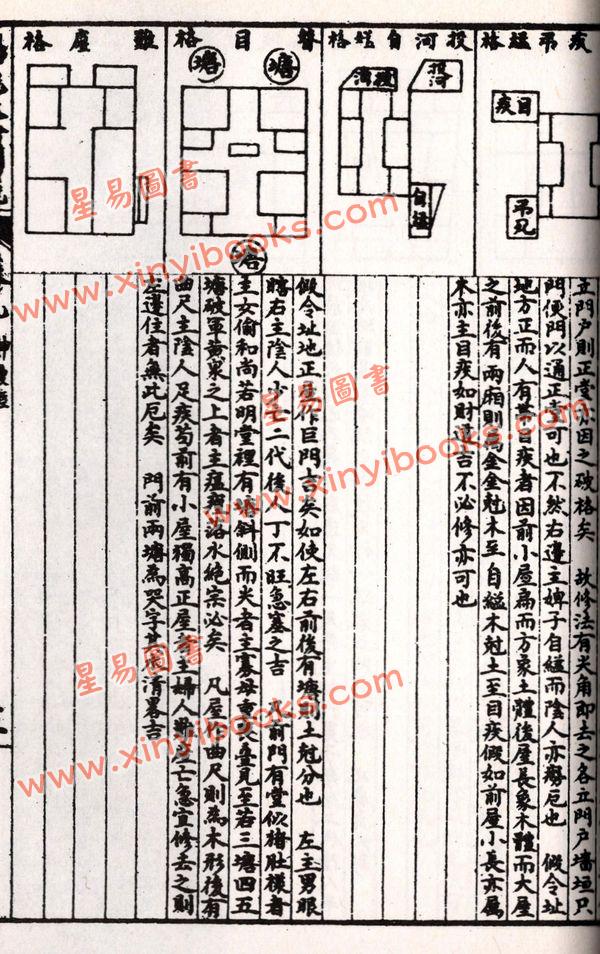 疾吊縊格
目疾
吊死
投河自縊格
投河
自縊
瞽目格
塘
塘
塘
難產格
立門戶則正堂亦因之破格矣 故修法有尖角即去之各立門戶墻垣只
門便門以通正堂可也不然右邊主婢子自縊而陰人亦厄也 假令址
地方正而人有帶目疾者因前小屋為而方象土體後屋長象木體而大屋
之前後有兩廂則為金金尅木至自縊木尅土至目疾假如前屋小長亦屬
木亦主目疾如財運吉不必修亦可也
假令址地正屋作巨門吉矣如使左右前後有塘則土尅分也 左主男眼
瞎右主陰人少亡二代後人丁不旺急塞之吉 凡前門有堂似猪肚樣者
主女偷和尚若明堂裡有塘斜側而尖者主寡母重喪疊見至若三塘四五
塘破軍黃泉之上者主瘟落水絕宗必矣 凡屋作曲尺則為木形後有
曲尺主陰人足疾若前有小屋獨高正屋者主婦人難產亡急宜修去之則
邊住者無此厄矣 門前兩塘為哭字
星易圖書
www.xinyibooks.com
星易圖書
www.xinyibooks.com
星易圖書
www.xinyibooks.com